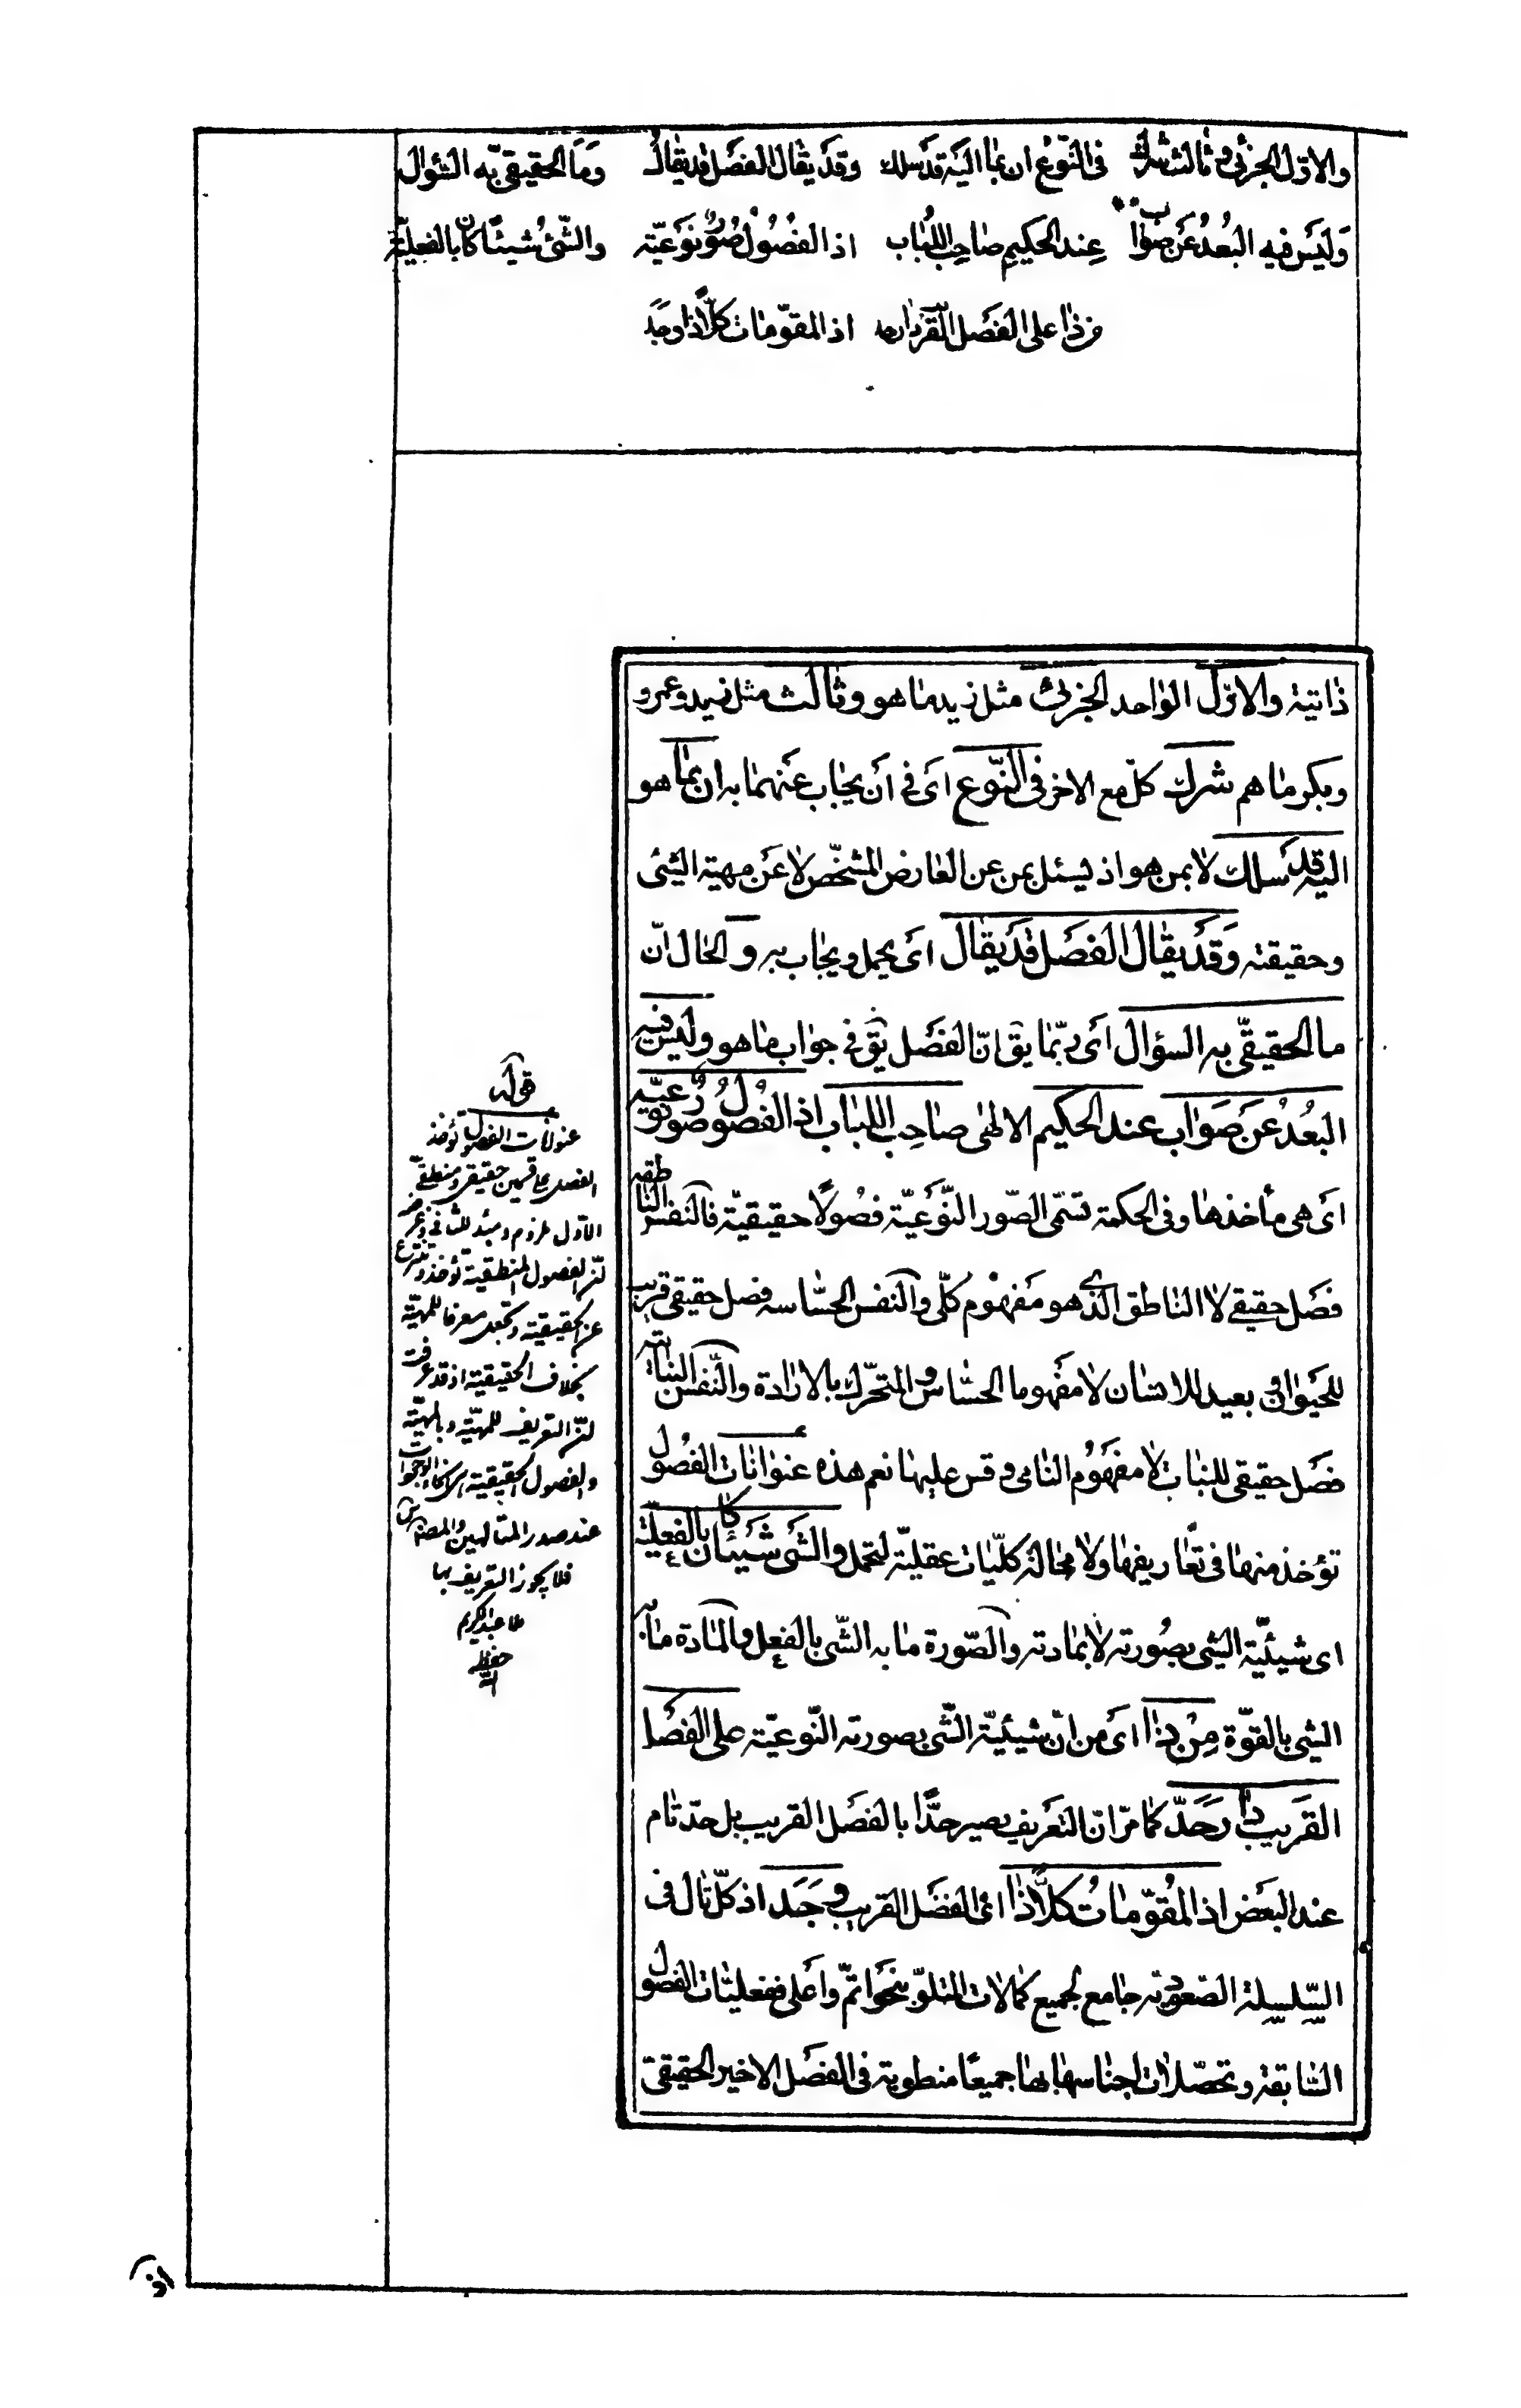 والاوّل الجزئی وثالث شرك فی النّوع ان بما الیه قد سلك وقد یقال الفصل قد یقال وما الحقیقیّ به السّؤال
ولیس فیه البعد عن صواب عند الحکیم صاحب اللّباب اذ الفصول صور نوعیّة والشّیء شیئا کان بالفعلیّة
من ذا علی الفصل القریب دار حد اذ المقوّمات کلّا ذا وجد
ذاتیة والاوّل الواحد الجزئی مثل زید ما هو وثالث مثل زید وعمرو
وبکر ما هم شرك کلّ مع الاخر فی النّوع ای فی ان یجاب عنهما به ان بما هو
الیه قد سلك لا بمن هو اذ یسئل بمن عن العارض المشخّص لا عن مهیة الشیء
وحقیقته وقد یقال الفصل قد یقال ای یحمل ویجاب به و الحال انّ
ما الحقیقیّ به السؤال ای ربّما یق انّ الفصل یق فی جواب ما هو ولیس فیه
البعد عن صواب عند الحکیم الالهی صاحب اللباب اذ الفصول صور نوعیّه
ای هی مأخذها وفی الحکمة تسمّی الصّور النّوعیّة فصولًا حقیقیّة فالنفس الناطقه
فصل حقیقی لا الناطق الذی هو مفهوم کلّی والنفس الحسّاسه فصل حقیقی قریب
للحیوان وبعید للانسان لا مفهوما الحسّاس والمتحرّك بالارادة والنّفس النباتیه
فصل حقیقی للنبات لا مفهوم النامی وقس علیها نعم هذه عنوانات الفصول
تؤخذ منها فی تعاریفها ولا محالة کلّیات عقلیّة لتحمل والشّیء شیئا کان بالفعلیّة
ای شیئیّة الشیء بصورته لا بمادته والصّورة ما به الشّیء بالفعل والمادة ما به
الشیء بالقوّة من ذا ای من انّ شیئیّة الشّیء بصورته النّوعیّة علی الفصل
القریب دار حدّ کما مرّ انّ التعریف یصیر حدّا بالفصل القریب بل حدّ تام
عند البعض اذ المقوّمات کلّا ذا ای الفصل القریب وجد اذ کلّ تال فی
السّلسلة الصّعودیّة جامع لجمیع کمالات المتلوّ بنحو اتمّ واعلی ففعلیّات الفصول
السّابقة وتحصّلات اجناسها بها جمیعًا منطویة فی الفصل الاخیر الحقیقیّ
قوله
عنوانات الفصول تؤخذ
الفصل علی قسمین حقیقی ومنطقی
الاوّل ملزوم ومبدء للثانی
الفصول المنطقیة تؤخذ وتنتزع
الحقیقیة وتجعل معرفا للمهیّة
بخلاف الحقیقیة اذ قد عرفت
التعریف للمهیّة وبالمهیّة
والفصول الحقیقیة
عند صدر المتالهین والمصنف
فلا یجوز التعریف بها
عبد الکریم
حفظه
الله
اذ